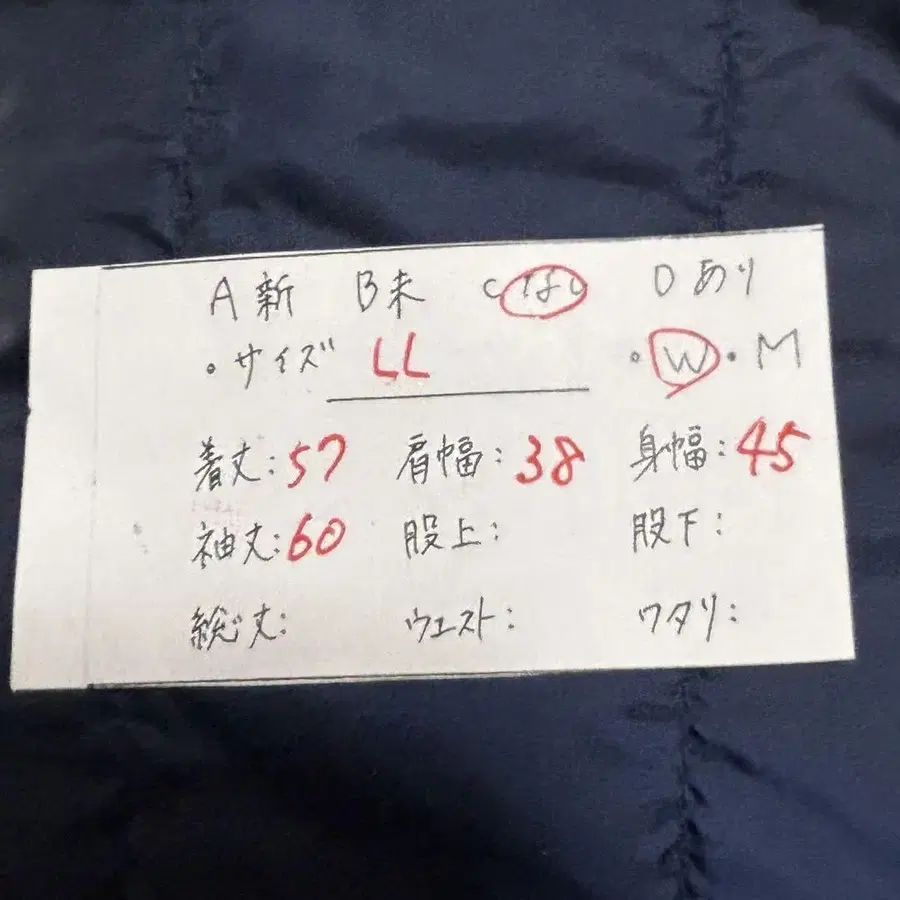 A新 B未 Cなし Dあり
・サイズ LL ・W・M
着丈:57 肩幅:38 身幅:45
袖丈:60 股上: 股下:
総丈: ウエスト: ワタリ: